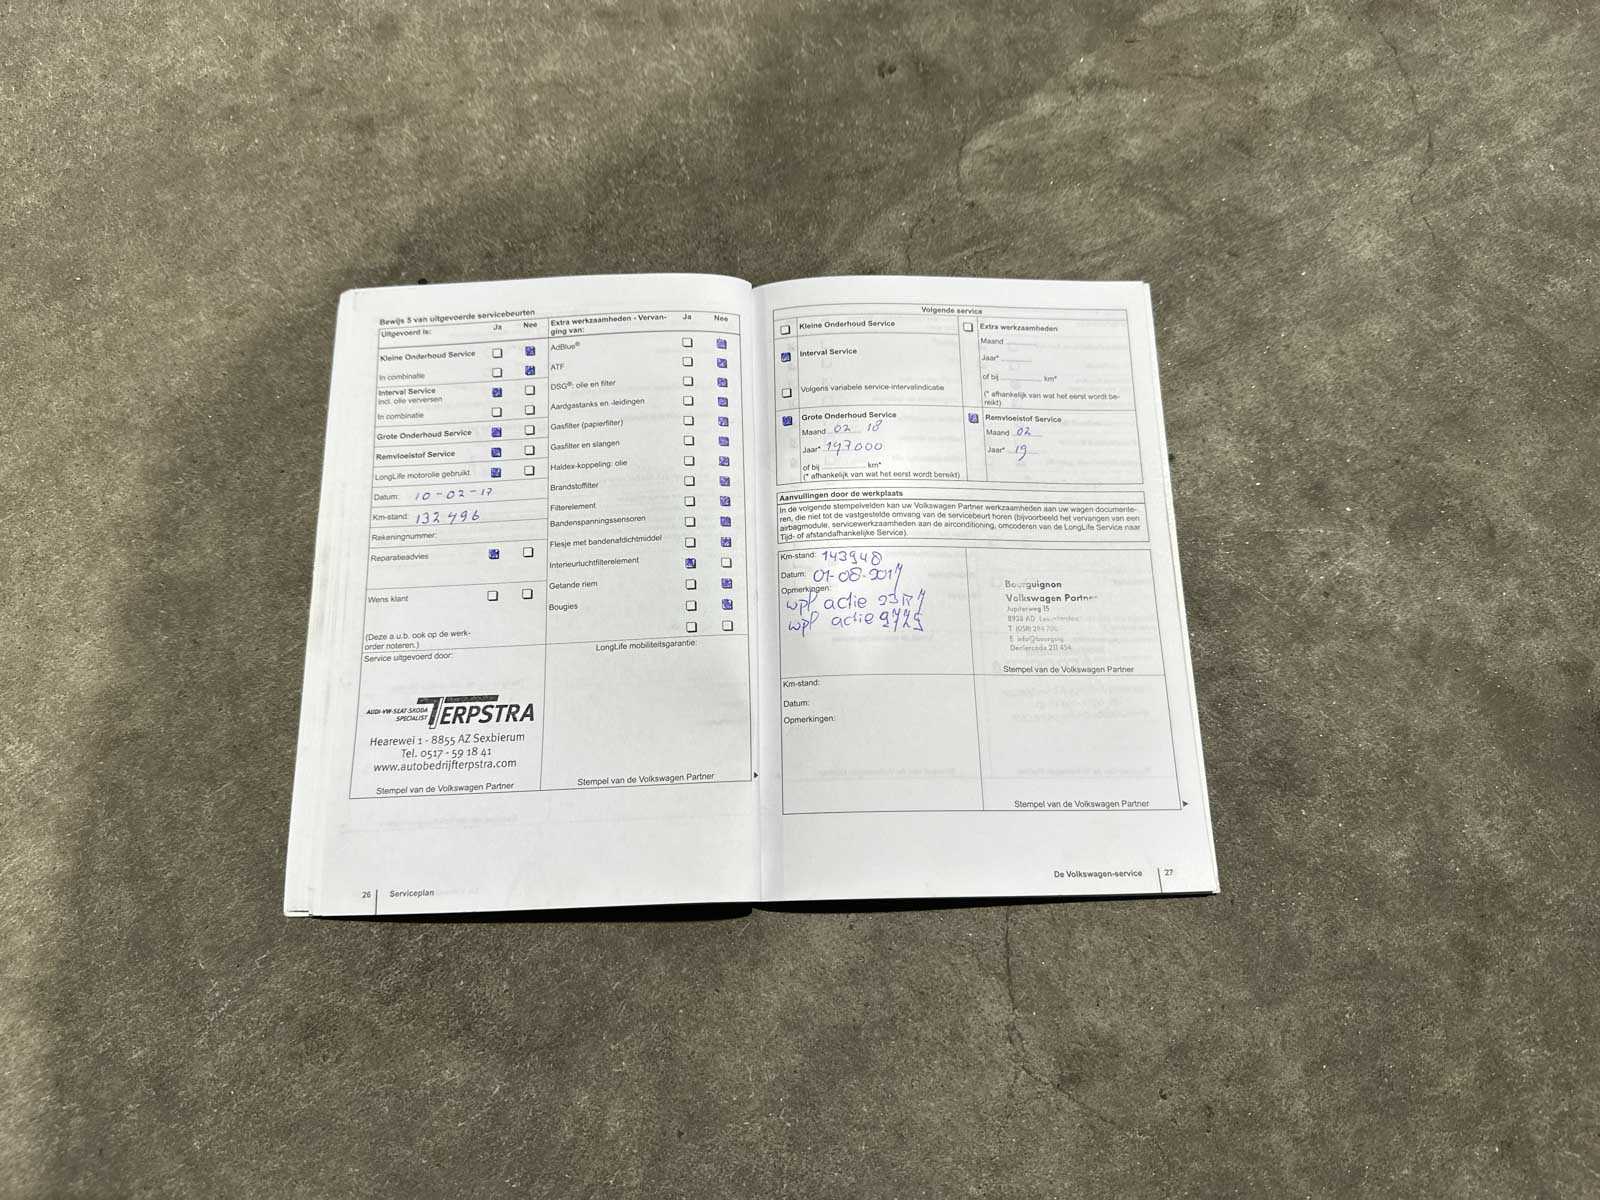 Bewijs 5 van uitgevoerde servicebeurten
Uitgevoerd is: Ja Nee
Kleine Onderhoud Service
In combinatie
Interval Service
incl. olie verversen
In combinatie
Grote Onderhoud Service
Remvloeistof Service
LongLife motorolie gebruikt
Datum: 10-02-17
Km-stand: 132496
Rekeningnummer:
Reparatieadvies
Wens klant
(Deze a.u.b. ook op de werk-
order noteren.)
Service uitgevoerd door:
AUDI-VW-SEAT-SKODA
SPECIALIST
TERPSTRA
Hearewei 1 - 8855 AZ Sexbierum
Tel. 0517 - 59 18 41
www.autobedrijfterpstra.com
Stempel van de Volkswagen Partner
Extra werkzaamheden - Vervan-
ging van: Ja Nee
AdBlue®
ATF
DSG®: olie en filter
Aardgastanks en -leidingen
Gasfilter (papierfilter)
Gasfilter en slangen
Haldex-koppeling: olie
Brandstoffilter
Filterelement
Bandenspanningssensoren
Flesje met bandenafdichtmiddel
Interieurluchtfilterelement
Getande riem
Bougies
LongLife mobiliteitsgarantie:
Stempel van de Volkswagen Partner
26 Serviceplan
Volgende service
Kleine Onderhoud Service
Interval Service
Volgens variabele service-intervalindicatie
Extra werkzaamheden
Maand
Jaar*
of bij km*
(* afhankelijk van wat het eerst wordt be-
reikt)
Grote Onderhoud Service
Maand 02 18
Jaar* 147000
of bij km*
(* afhankelijk van wat het eerst wordt bereikt)
Remvloeistof Service
Maand 02
Jaar* 19
Aanvullingen door de werkplaats
In de volgende stempelvelden kan uw Volkswagen Partner werkzaamheden aan uw wagen documente-
ren, die niet tot de vastgestelde omvang van de servicebeurt horen (bijvoorbeeld het vervangen van een
airbagmodule, servicewerkzaamheden aan de airconditioning, omcoderen van de LongLife Service naar
Tijd- of afstandafhankelijke Service).
Km-stand: 143948
Datum: 01-08-2017
Opmerkingen:
wpl actie
wpl actie
Bourguignon
Volkswagen Partner
Jupiterweg 15
8938 AD Leeuwarden
T (058)
E info@bourguig
Dealercode 211 454
Stempel van de Volkswagen Partner
Km-stand:
Datum:
Opmerkingen:
Stempel van de Volkswagen Partner
De Volkswagen-service 27